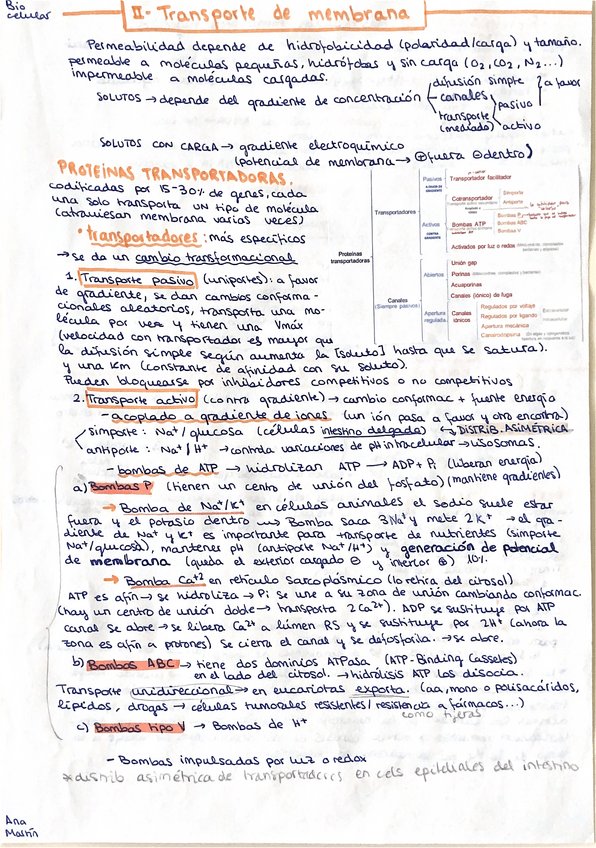 Bio
celular
II- Transporte de membrana
Permeabilidad depende de hidrofobicidad (polaridad/carga) y tamaño.
permeable a moléculas pequeñas, hidrófobas y sin carga (O2, CO2, N2...)
impermeable a moléculas cargadas.
SOLUTOS → depende del gradiente de concentración
difusión simple
canales
transporte
(mediado)
pasivo
activo
a favor
SOLUTOS CON CARGA → gradiente electroquímico
(potencial de membrana → ⊕fuera ⊖dentro)
PROTEÍNAS TRANSPORTADORAS.
codificadas por 15-30% de genes, cada
una solo transporta un tipo de molécula
(atraviesan membrana varias veces)
• transportadores: más específicos
→ se da un cambio transformacional
Proteínas
transportadoras
Transportadores
Canales
(Siempre pasivos)
Pasivos
Transportador facilitador
Activos
Cotransportador
Simporte
Antiporte
Bombas ATP
Bombas P
Bombas ABC
Bombas V
Activados por luz o redox
Abiertos
Unión gap
Porinas
Acuaporinas
Canales (iónico) de fuga
Apertura
regulada
Canales
iónicos
Regulados por voltaje
Regulados por ligando
Apertura mecánica
Canalrodopsina
1. Transporte pasivo (uniportes): a favor
de gradiente, se dan cambios conforma-
cionales aleatorios, transporta una mo-
lécula por vez y tienen una Vmáx
(velocidad con transportador es mayor que
la difusión simple según aumenta la [soluto] hasta que se satura).
y una Km (constante de afinidad con su soluto).
Pueden bloquearse por inhibidores competitivos o no competitivos
2. Transporte activo (contra gradiente) → cambio conformac + fuente energía
- acoplado a gradiente de iones (un ión pasa a favor y otro encontra)
simporte: Na+/glucosa (células intestino delgado) ↳ DISTRIB. ASIMÉTRICA
antiporte: Na+/H+ → controla variaciones de pH intracelular → lisosomas.
- bombas de ATP → hidrolizan ATP → ADP + Pi (liberan energía)
a) Bombas P (tienen un centro de unión del fosfato) (mantiene gradientes)
→ Bomba de Na+/K+ en células animales el sodio suele estar
fuera y el potasio dentro → Bomba saca 3Na+ y mete 2K+ → el gra-
diente de Na+ y K+ es importante para transporte de nutrientes (simporte
Na+/glucosa), mantener pH (antiporte Na+/H+) y generación de potencial
de membrana (queda el exterior cargado ⊖ y interior ⊕) 10%.
→ Bomba Ca+2 en retículo sarcoplásmico (lo retira del citosol)
ATP es afín → se hidroliza → Pi se une a su zona de unión cambiando conformac.
(hay un centro de unión doble → transporta 2Ca2+). ADP se sustituye por ATP
canal se abre → se libera Ca2+ a lúmen RS y se sustituye por 2H+ (ahora la
zona es afín a protones) Se cierra el canal y se defosforila. → se abre.
b) Bombas ABC → tiene dos dominios ATPasa (ATP-Binding Cassetes)
en el lado del citosol. → hidrólisis ATP los disocia.
Transporte unidireccional → en eucariotas exporta. (aa, mono o polisacáridos,
lípidos, drogas → células tumorales resistentes/resistencia a fármacos...)
como tijeras
c) Bombas tipo V → Bombas de H+
- Bombas impulsadas por luz o redox
* distrib asimétrica de transportadores en cels epiteliales del intestino
Ana
Martín